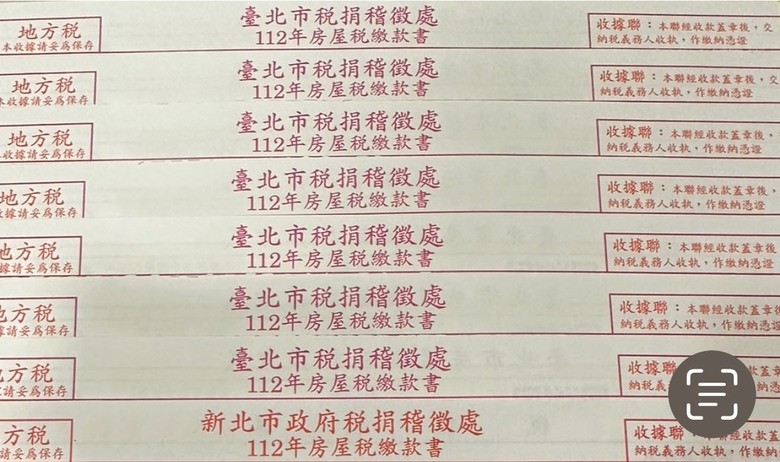 地方稅
本收據請妥為保存
臺北市稅捐稽徵處
112年房屋稅繳款書
收據聯：本聯經收款蓋章後，交
納稅義務人收執，作繳納憑證
地方稅
本收據請妥為保存
臺北市稅捐稽徵處
112年房屋稅繳款書
收據聯：本聯經收款蓋章後，交
納稅義務人收執，作繳納憑證
地方稅
收據請妥為保存
臺北市稅捐稽徵處
112年房屋稅繳款書
收據聯：本聯經收款蓋章後，
納稅義務人收執，作繳納憑證
地方稅
收據請妥為保存
臺北市稅捐稽徵處
112年房屋稅繳款書
收據聯：本聯經收款蓋章後，
納稅義務人收執，作繳納憑證
地方稅
據請妥為保存
臺北市稅捐稽徵處
112年房屋稅繳款書
收據聯：本聯經收款蓋章後
納稅義務人收執，作繳納憑證
方稅
據請妥為保存
臺北市稅捐稽徵處
112年房屋稅繳款書
收據聯：本聯經收款蓋章後
納稅義務人收執，作繳納憑證
方稅
請妥為保存
臺北市稅捐稽徵處
112年房屋稅繳款書
收據聯
納稅義
方稅
請妥為保存
新北市政府稅捐稽徵處
112年房屋稅繳款書
收據聯
納稅義務人收執，作繳納憑